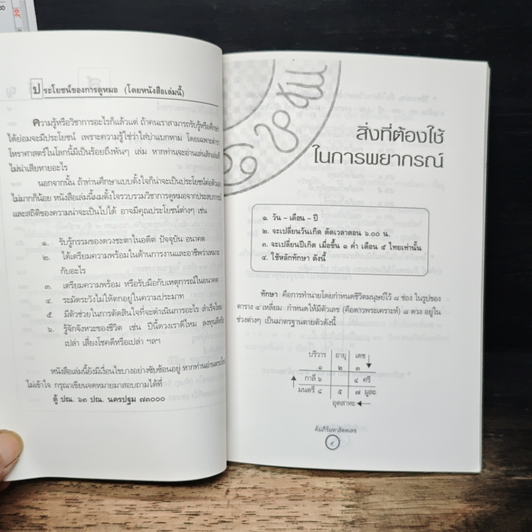 ประโยชน์ของการดูหมอ (โดยหนังสือเล่มนี้)
ความรู้หรือวิชาการอะไรก็แล้วแต่ ถ้าคนเราสามารถรับรู้หรือศึกษา
ได้ย่อมจะมีประโยชน์ เพราะความรู้ใช่ว่าใส่บ่าแบกหาม โดยเฉพาะตำรา
โหราศาสตร์ในโลกนี้มีเป็นร้อยถึงพันๆ เล่ม หากท่านจะอ่านเล่นสักเล่มก็
ไม่น่าเสียหายอะไร
นอกจากนั้น ถ้าท่านศึกษาแบบตั้งใจก็น่าจะเป็นประโยชน์ต่อตัว
ไม่มากก็น้อย หนังสือเล่มนี้ผมตั้งใจรวบรวมวิชาการดูหมอจากประสบการณ์
และสถิติของความน่าจะเป็นไปได้ อาจมีคุณประโยชน์ต่างๆ เช่น
๑. รับรู้กรรมของดวงชะตาในอดีต ปัจจุบัน อนาคต
๒. ได้เตรียมความพร้อมในด้านการงานและอาชีพว่าเหมาะ
กับอะไร
๓. เตรียมความพร้อม หรือรับมือกับเหตุการณ์ในอนาคต
๔. ระมัดระวังไม่ให้ตกอยู่ในความประมาท
๕. มีตัวช่วยในการตัดสินใจที่จะดำเนินการอะไร สำเร็จไหม
๖. รู้จังหวะของชีวิต เช่น ปีนี้ดวงเราดีไหม ลงทุนดีหรือ
เปล่า เสี่ยงโชคดีหรือเปล่า ฯลฯ
หนังสือเล่มนี้ยังมีเงื่อนไขบางอย่างซับซ้อนอยู่ หากท่านอ่านตรงไหน
ไม่เข้าใจ กรุณาเขียนจดหมายมาสอบถามได้ที่
ตู้ ปณ. ๖๓ ปณ. นครปฐม ๗๓๐๐๐
สิ่งที่ต้องใช้
ในการพยากรณ์
๑. วัน - เดือน - ปี
๒. จะเปลี่ยนวันเกิด ตัดเวลาตอน ๖.๐๐ น.
๓. จะเปลี่ยนปีเกิด เมื่อขึ้น ๑ ค่ำ เดือน ๕ ไทยเท่านั้น
๔. ใช้หลักทักษา ดังนี้
ทักษา คือการทำนายโดยกำหนดชีวิตมนุษย์ไว้ ๘ ช่อง ในรูปของ
ตาราง ๔ เหลี่ยม กำหนดให้มีตัวเลข (คือดาวพระเคราะห์) ๘ ดวง อยู่ใน
ช่องต่างๆ เป็นมาตรฐานตายตัวดังนี้
บริวาร อายุ เดช
๑ ๒ ๓
กาลี ๖ ๔ ศรี
มนตรี ๘ ๕ ๗ มูละ
อุตสาหะ
คัมภีร์มหาสัตตเลข